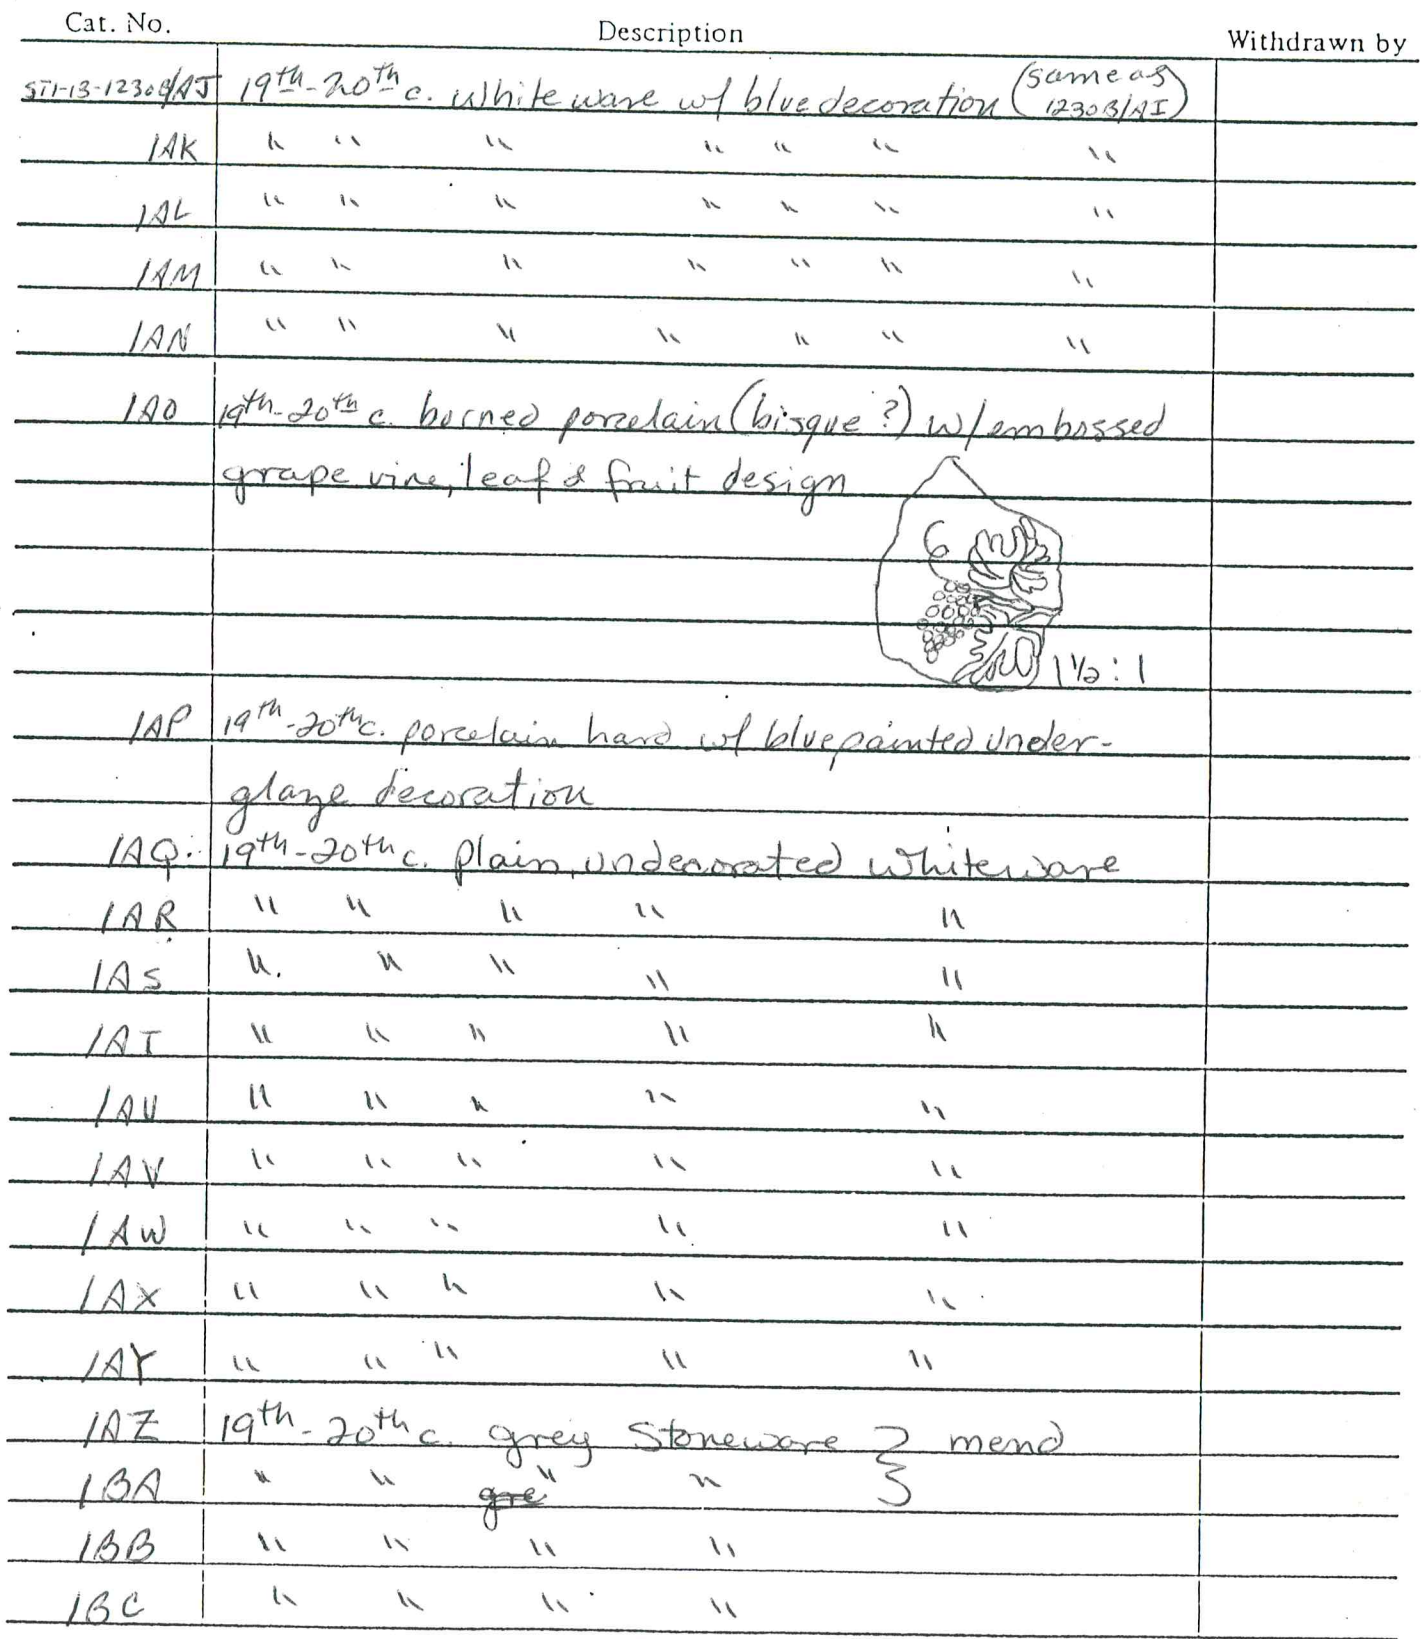 Cat. No. Description Withdrawn by
ST1-13-1230B/AJ 19th-20th c. White ware w/ blue decoration (same as 1230B/AI)
/AK " " " " " " "
/AL " " " " " " "
/AM " " " " " " "
/AN " " " " " " "
/AO 19th-20th c. burned porcelain (bisque?) w/ embossed
grape vine, leaf & fruit design
1½:1
/AP 19th-20th c. porcelain hard w/ blue painted under-
glaze decoration
/AQ 19th-20th c. Plain, undecorated whiteware
/AR " " " " "
/AS " " " " "
/AT " " " " "
/AU " " " " "
/AV " " " " "
/AW " " " " "
/AX " " " " "
/AY " " " " "
/AZ 19th-20th c. grey Stoneware } mend
/BA " " gre " "
/BB " " " "
/BC " " " "